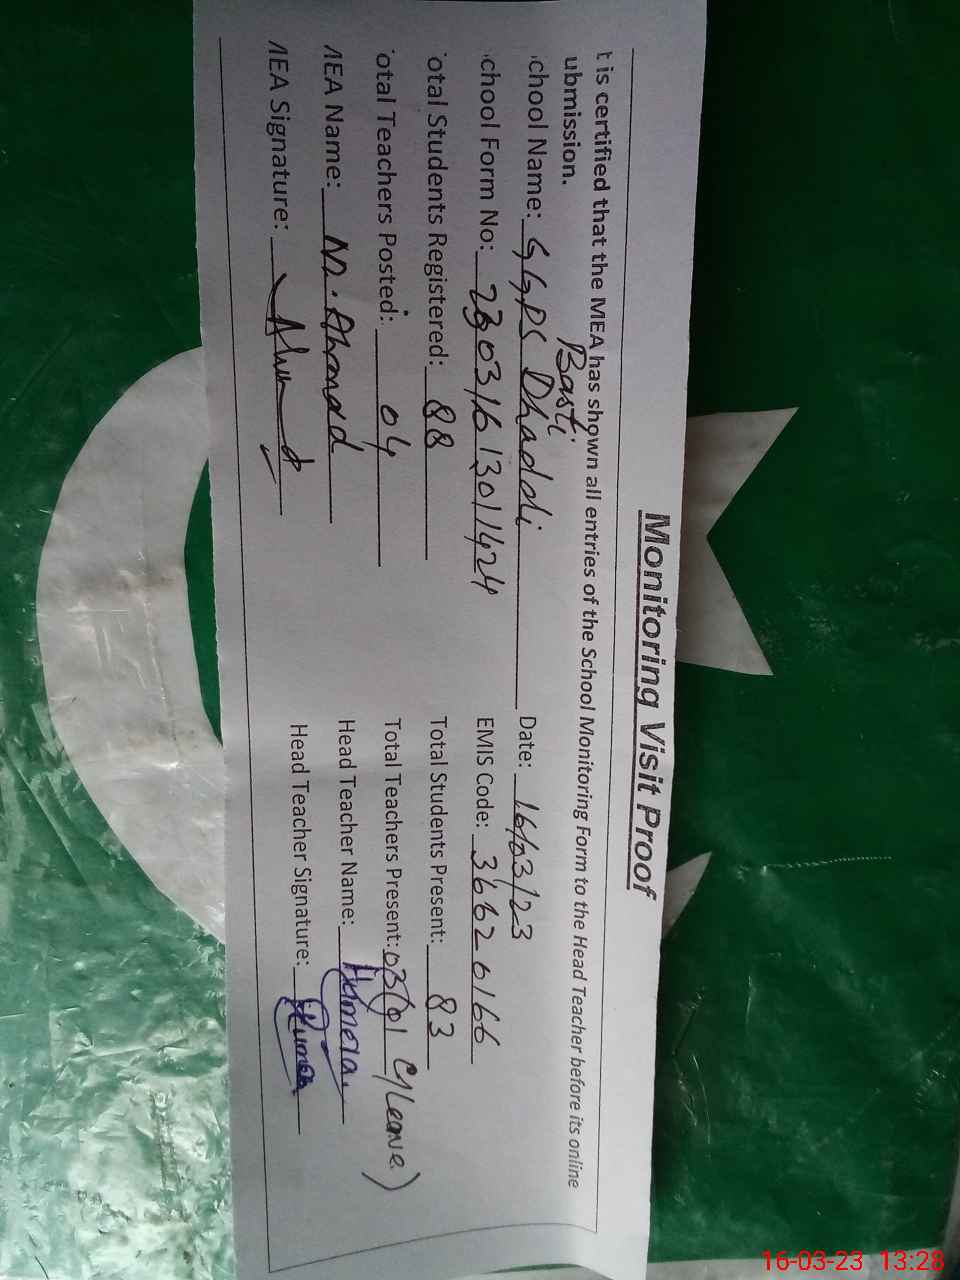 Monitoring Visit Proof
t is certified that the MEA has shown all entries of the School Monitoring Form to the Head Teacher before its online
ubmission.
chool Name: GGPS Basti Dhaddi Date: 16/03/23
chool Form No: 23031613011424 EMIS Code: 36620166
otal Students Registered: 88 Total Students Present: 83
otal Teachers Posted: 04 Total Teachers Present: 03 (01 C/Leave)
MEA Name: M. Ahmad Head Teacher Name: Humera
MEA Signature: Head Teacher Signature: Humera
16-03-23 13:28